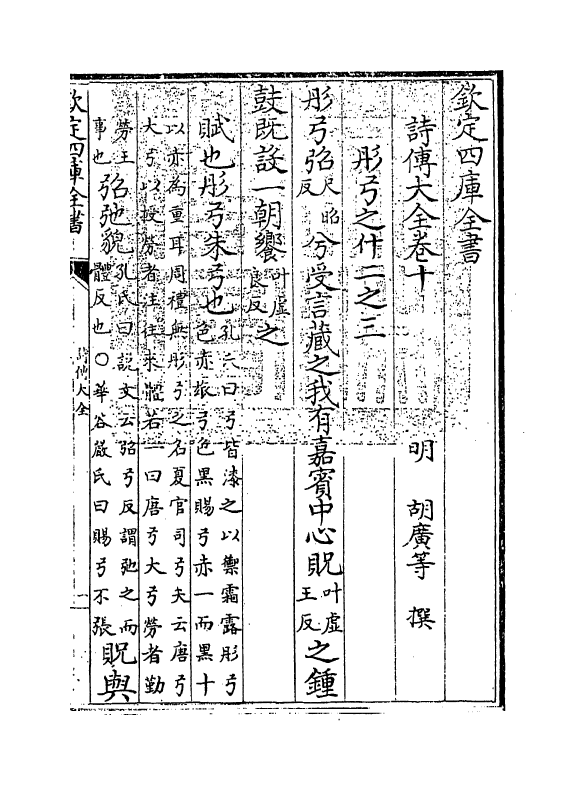 欽定四庫全書
詩傳大全卷十 明 胡廣等 撰
彤弓之什二之三
彤弓弨尺昭反兮受言藏之我有嘉賓中心貺叶虛王反之鍾
鼓既設一朝饗叶虛良反之
賦也彤弓朱弓也孔氏曰弓皆漆之以禦霜露彤弓色赤玈弓色黑賜弓赤一而黑十
以赤為重耳周禮無彤弓之名夏官司弓矢云唐弓大弓以授勞者註往來體若一曰唐弓大弓勞者勤
勞王事也弨弛貌孔氏曰說文云弨弓反謂弛之而體反也○華谷嚴氏曰賜弓不張貺與
欽定四庫全書
詩傳大全
一